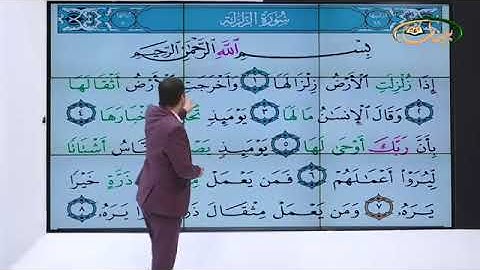 سُورَةُ الزَّلْزَلَةِ
بِسْمِ اللَّهِ الرَّحْمَٰنِ الرَّحِيمِ
إِذَا زُلْزِلَتِ الْأَرْضُ زِلْزَالَهَا ١ وَأَخْرَجَتِ الْأَرْضُ أَثْقَالَهَا
٢ وَقَالَ الْإِنسَانُ مَا لَهَا ٣ يَوْمَئِذٍ ٤
بِأَنَّ رَبَّكَ أَوْحَىٰ لَهَا ٥ يَوْمَئِذٍ أَشْتَاتًا
لِيُرَوْا أَعْمَالَهُمْ ٦ فَمَن يَعْمَلْ ذَرَّةٍ خَيْرًا
يَرَهُ ٧ وَمَن يَعْمَلْ مِثْقَالَ يَرَهُ ٨